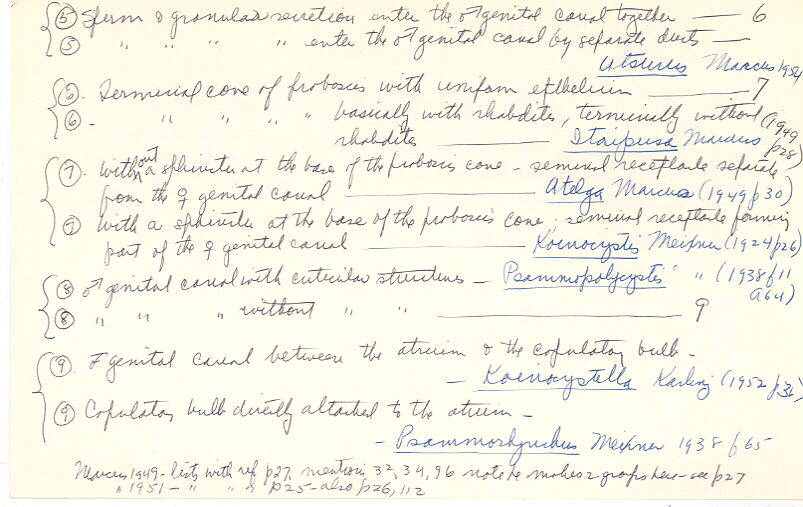 ⑤ Sperm & granular secretion enter the ♂ genital canal together — 6
⑤ " " " " enter the ♂ genital canal by separate ducts —
Utsurus Marcus 1951
⑥. Terminal cone of proboscis with uniform epthelium — 7
⑥. " " " " basically with rhabdites, terminally without
rhabdites — Itaipusa Marcus (1949 p28)
⑦. without a sphincter at the base of the proboscis cone - seminal receptacle separate
from the ♀ genital canal — Atelga Marcus (1949 p30)
⑦ with a sphincter at the base of the proboscis cone; seminal receptacle forming
part of the ♀ genital canal — Koinocystis Meixner (1924 p26)
⑧ ♂ genital canal with cuticular structures — Psammopolycystis " (1938 f11
a64)
⑧ " " " without " " — 9
⑨. ♂ genital canal between the atrium & the copulatory bulb -
— Koinocystella Karling (1952 p32)
⑨ Copulatory bulb directly attached to the atrium -
- Psammorhynchus Meixner 1938 f65
Marcus 1949 - lists with ref p27, mention 32, 34, 96 note he makes 2 groups here - see p27
" 1951 - " " " p25 - also p26, 112